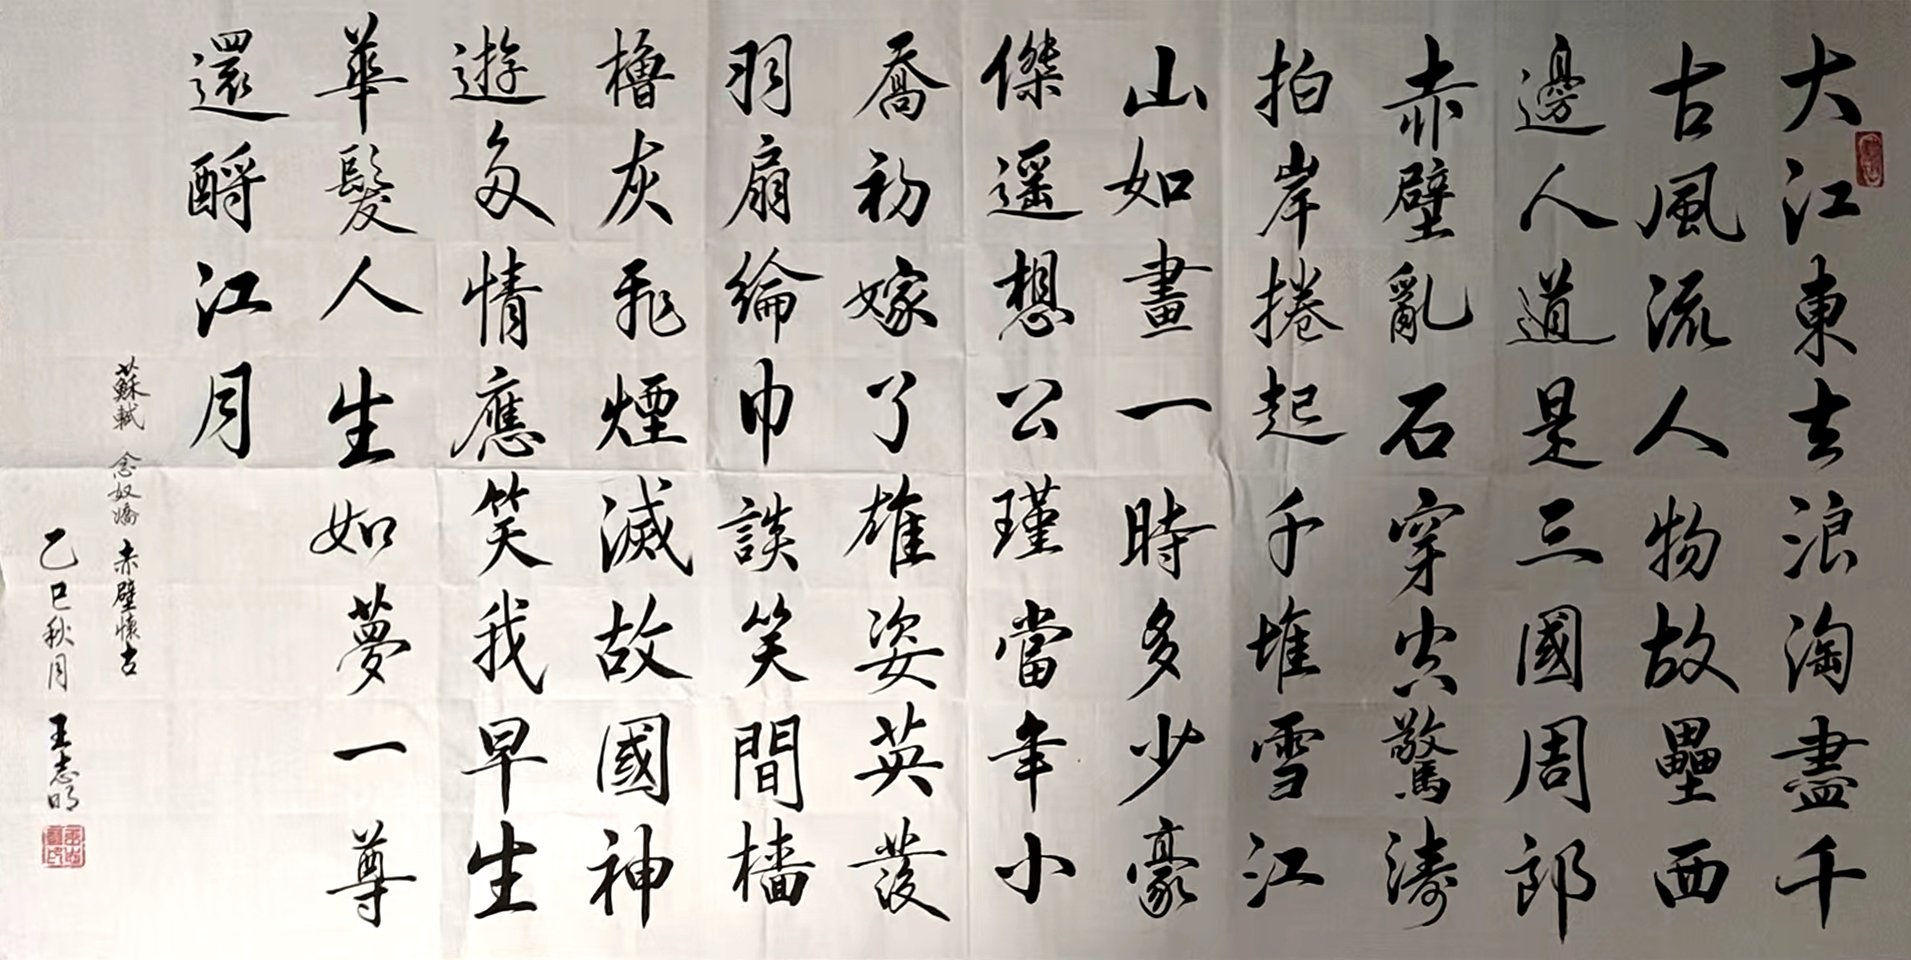 大江東去浪淘盡千
古風流人物故壘西
邊人道是三國周郎
赤壁亂石穿空驚濤
拍岸捲起千堆雪江
山如畫一時多少豪
傑遥想公瑾當年小
喬初嫁了雄姿英發
羽扇綸巾談笑間檣
櫓灰飛煙滅故國神
遊多情應笑我早生
華髮人生如夢一尊
還酹江月
蘇軾 念奴嬌 赤壁懷古
乙巳秋月 王志明